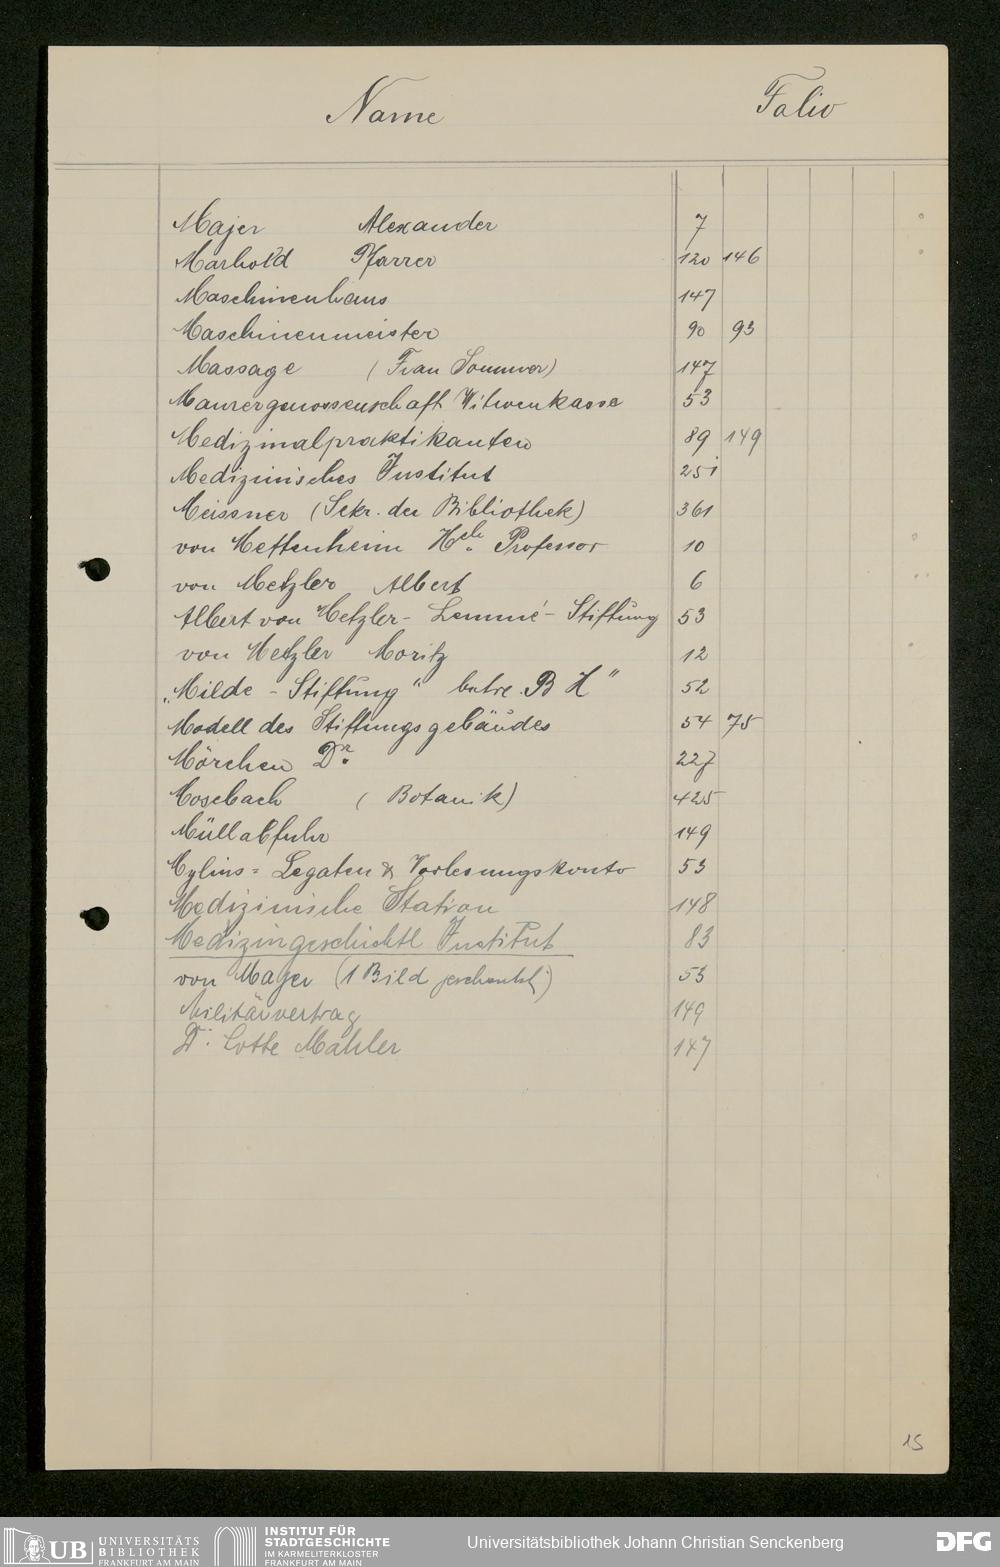 Name Folio
Majer Alexander 7
Marhold Pfarrer 120 146
Maschinenhaus 147
Maschinenmeister 90 93
Massage (Frau Sommer) 147
Maurergenossenschaft Witwenkasse 53
Medizinalpraktikanten 89 149
Medizinisches Institut 251
Meissner (Sekr. der Bibliothek) 361
von Mettenheim Hch. Professor 10
von Metzler Albert 6
Albert von Metzler-Lemmé-Stiftung 53
von Metzler Moritz 12
„Milde-Stiftung“ betre. B H" 52
Modell des Stiftungsgebäudes 54 75
Mörchen Dr. 227
Mosebach (Botanik) 425
Müllabfuhr 149
Mylius= Legaten & Vorlesungskonto 53
Medizinische Station 148
Medizingeschichtl Institut 83
von Mayer (1 Bild geschenkt) 53
Militärvertrag 149
Dr. Lotte Mahler 147
15
UB UNIVERSITÄTS BIBLIOTHEK FRANKFURT AM MAIN
INSTITUT FÜR STADTGESCHICHTE IM KARMELITERKLOSTER FRANKFURT AM MAIN
Universitätsbibliothek Johann Christian Senckenberg
DFG